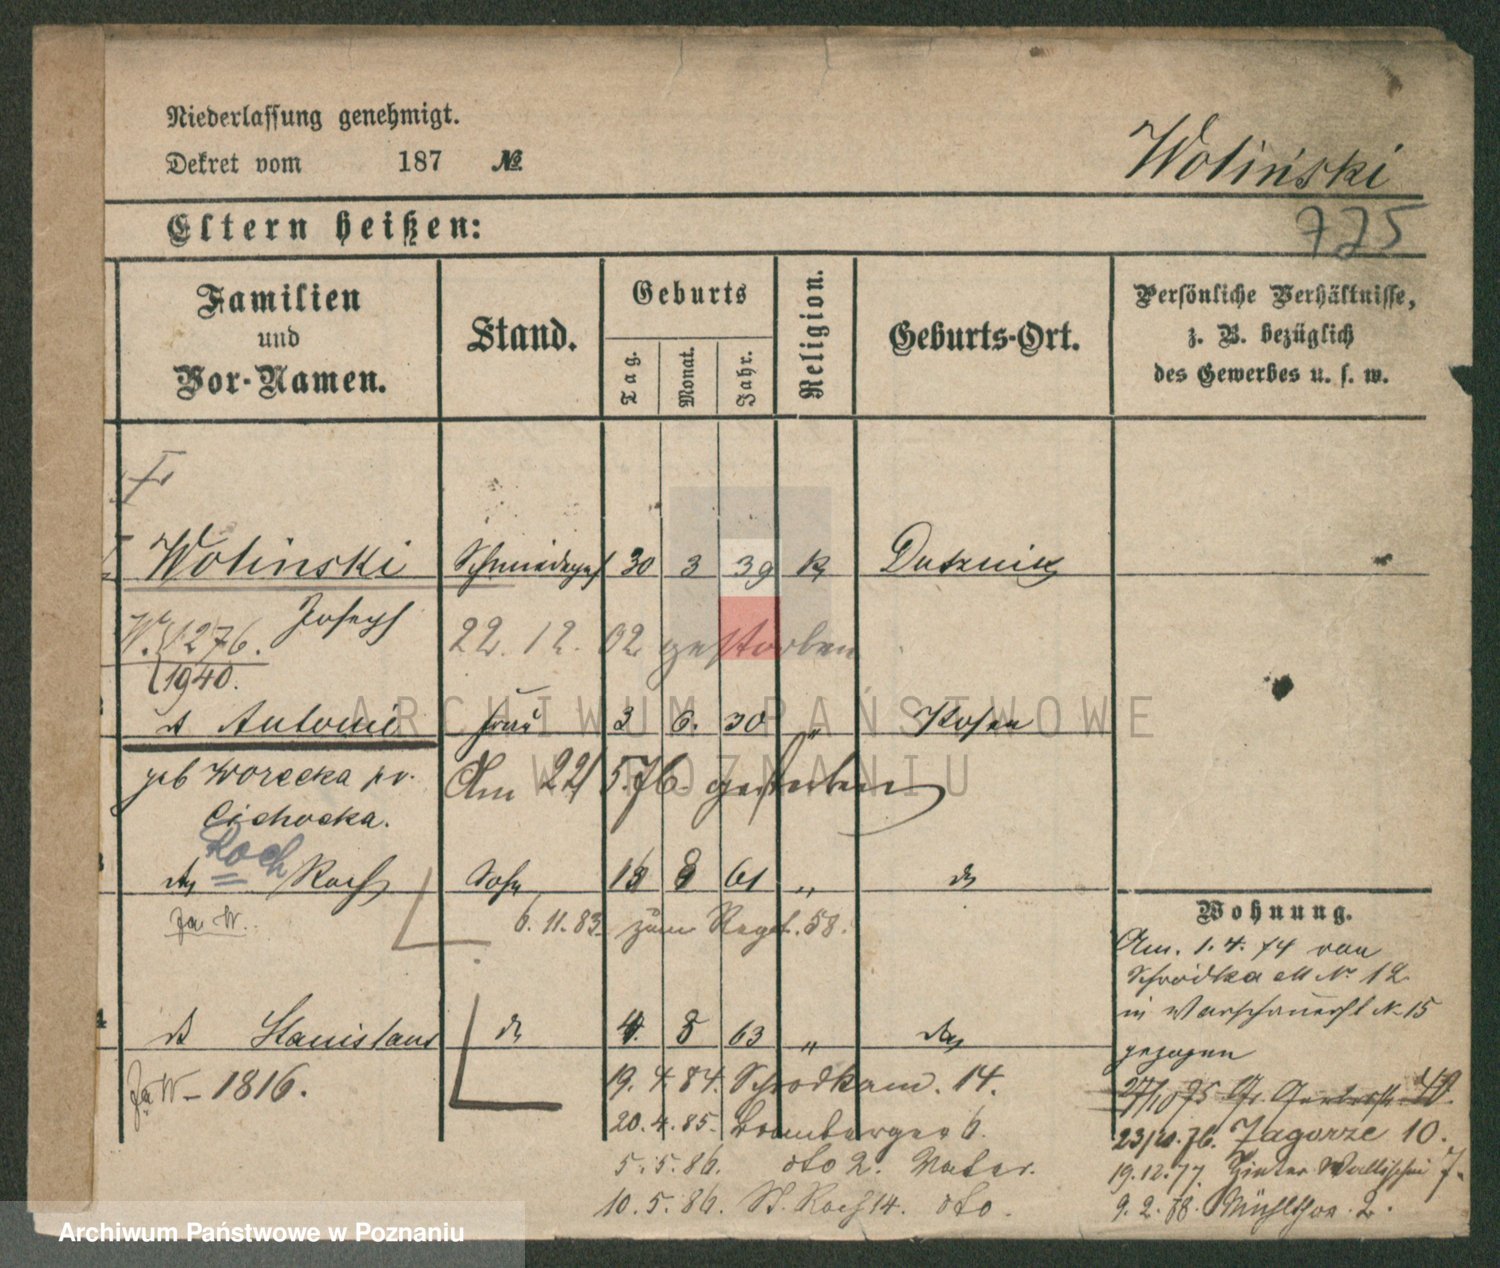 Niederlassung genehmigt.
Dekret vom 187 №
Woliński
725
Eltern heißen:
Familien und Vor-Namen.
Stand.
Geburts
Tag. Monat. Jahr.
Religion.
Geburts-Ort.
Persönliche Verhältnisse, z. B. bezüglich des Gewerbes u. s. w.
Wolinski Schmiedeges 30 3 39 K
Joseph
22. 12. 02 gestorben
1940.
Antonie Frau 3 6. 30 „ Posen
geb Worecka
Cichocka.
Am 22/5.76. gestorben
Roch
Roch Sohn 8 61 „
6. 11. 83. zum Regt. 58.
4 Stanislaus 4. 8 63 „
1816.
19. 4. 84. Schrodkam. 14.
20. 4. 85. Bromberger 6.
5. 5. 86. dto 2. Vater.
10. 5. 86. St. Roch 14. dto.
Wohnung.
Am. 1. 4. 74 von
Schrodka M No 12
in Warschauerst N. 15
gezogen
27/10 75
23/10. 76. Zagorze 10.
19. 12. 77. Hinter Wallischei 7.
9. 2. 88. Mühlthor. 2.
ARCHIWUM PAŃSTWOWE
W POZNANIU
Archiwum Państwowe w Poznaniu